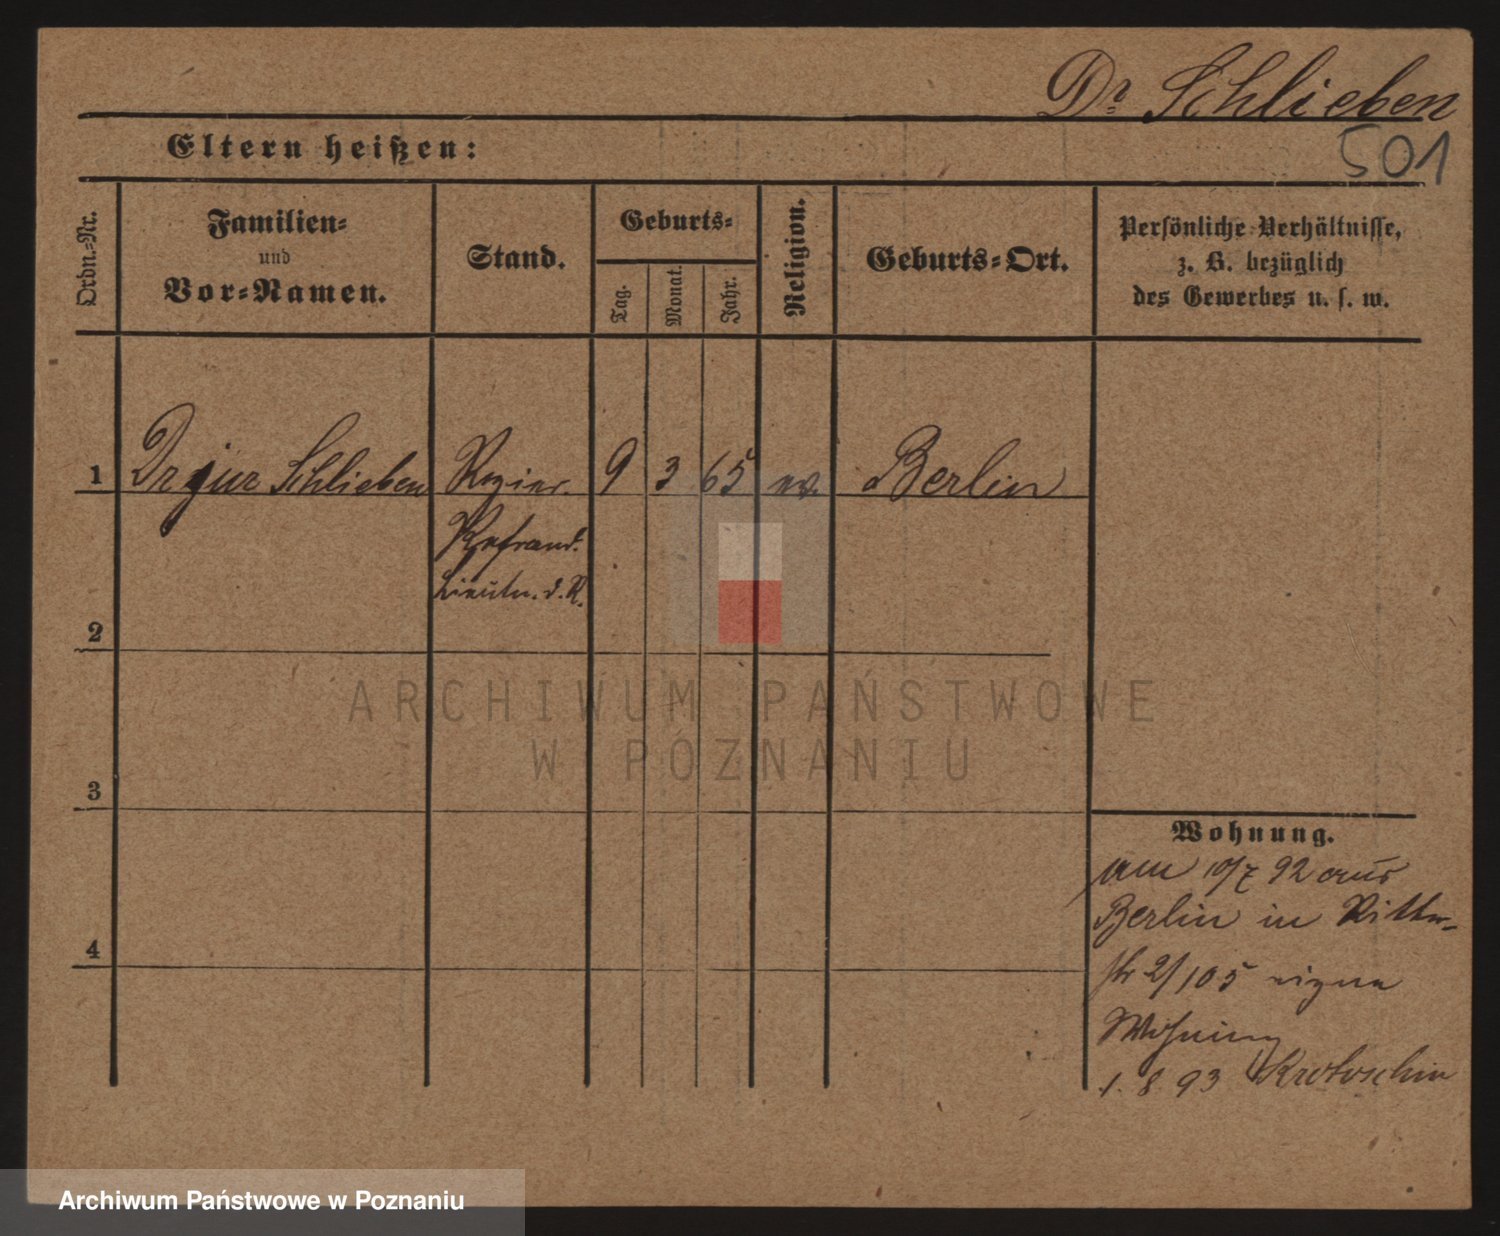 Dr. Schlieben
501
Eltern heißen:
Ordn.=Nr.
Familien=
und
Vor=Namen.
Stand.
Geburts=
Tag.
Monat.
Jahr.
Religion.
Geburts=Ort.
Persönliche Verhältnisse,
z. B. bezüglich
des Gewerbes u. s. w.
1 Dr jur Schlieben Regier. 9 3 65 ev. Berlin
Refrend.
Lieutn. d. R.
2
3
4
ARCHIWUM PAŃSTWOWE
W POZNANIU
Wohnung.
am 10/7 92 aus
Berlin in Ritter-
str 2/105 eigene
Wohnung
1. 8. 93 Krotoschin
Archiwum Państwowe w Poznaniu